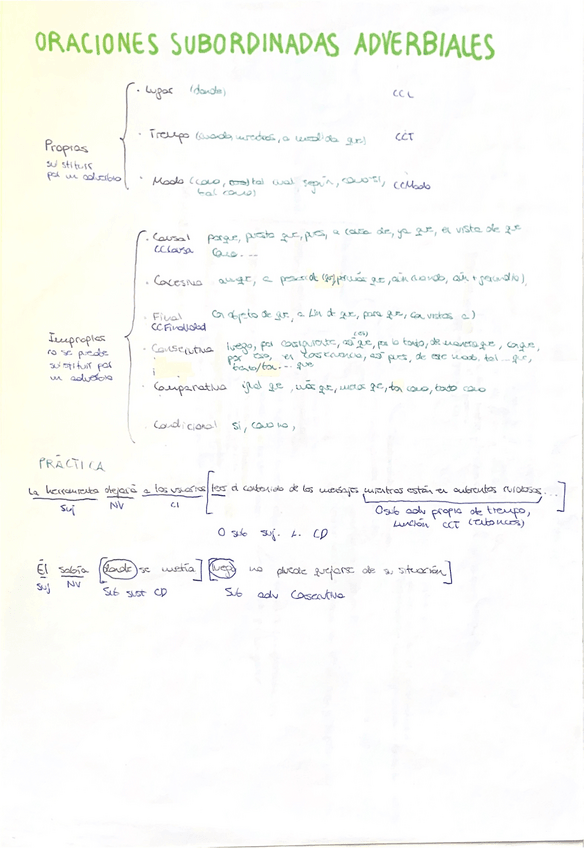 ORACIONES SUBORDINADAS ADVERBIALES
· Lugar (donde) CCL
Propias
sustituir
por un adverbio
· Tiempo (cuando, mientras, a medida que) CCT
· Modo (como, tal cual, según, como si, CCModo
tal como)
Impropias
no se puede
sustituir por
un adverbio
· Causal porque, puesto que, pues, a causa de, ya que, en vista de que
CCCausa como...
· Concesiva aunque, a pesar de que, aún cuando, aún + gerundio)
· Final Con objeto de que, a fin de que, para que, con vistas a)
CCFinalidad
· Consecutiva luego, por consiguiente, así que, por lo tanto, de manera que, conque,
por eso, en consecuencia, así pues, de ese modo, tal ... que,
tanto/tan... que
· Comparativa igual que, más que, menos que, tan como, tanto como
· Condicional Si, como no,
PRÁCTICA
La herramienta dejará a los usuarios [leer el contenido de los mensajes mientras están en ambientes ruidosos...]
Suj NV CI O sub adv propia de tiempo,
función CCT (Entonces)
O sub suj. f. CD
Él sabía [donde se metía] [luego no puede quejarse de su situación]
Suj NV Sub sust CD Sub adv Consecutiva